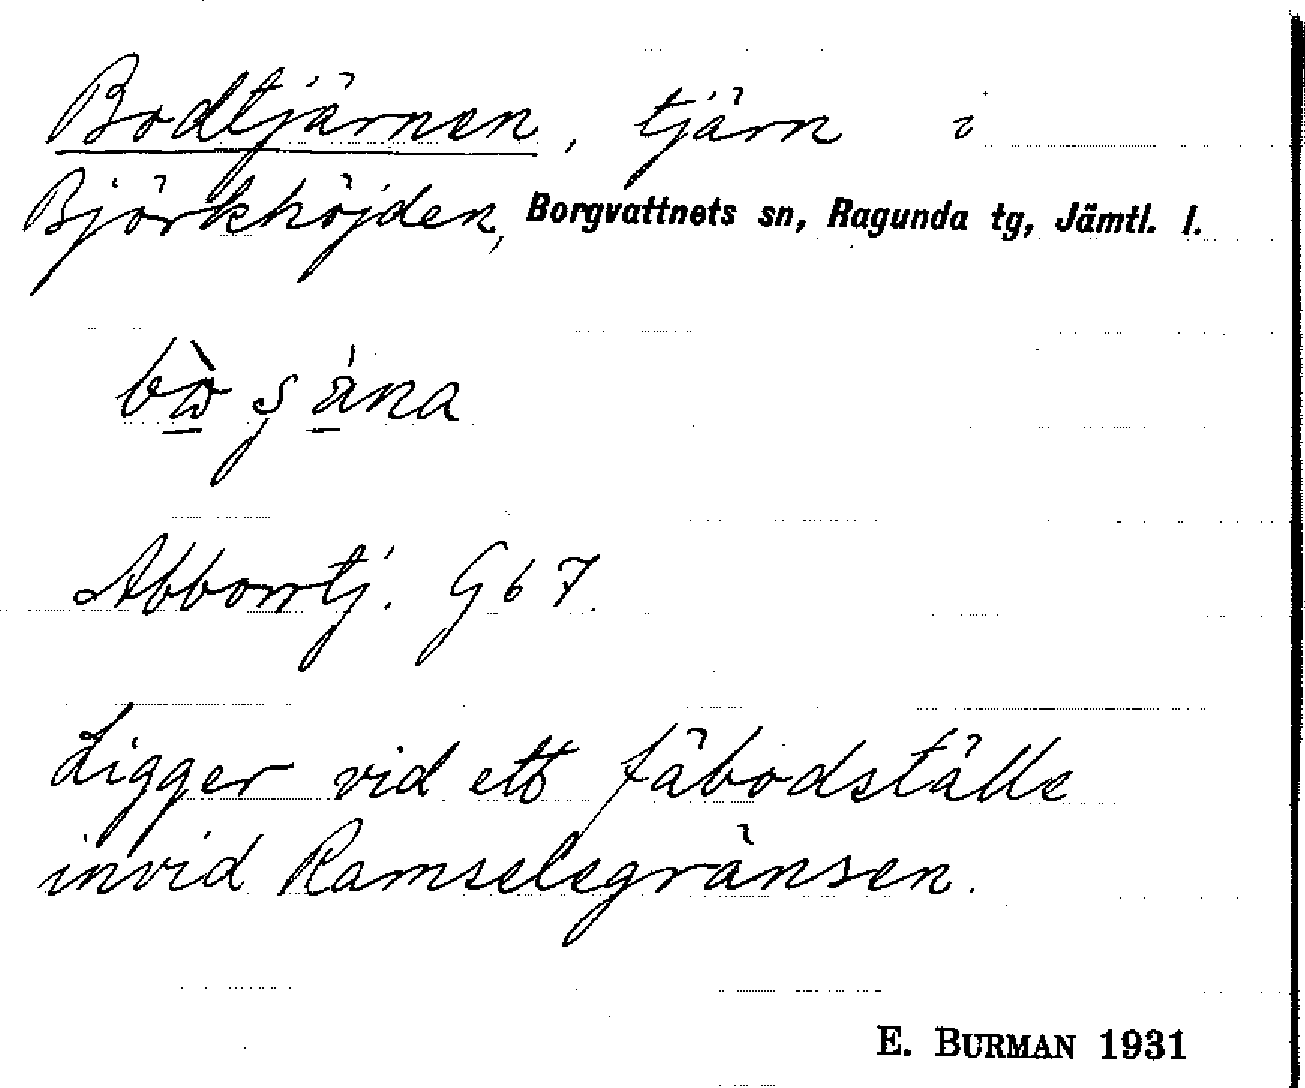 Bodtjärnen, tjärn i
Björkhöjden, Borgvattnets sn, Ragunda tg, Jämtl. l.
Abborrtj. G 6 7.
Ligger vid ett fäbodställe
invid Ramselegränsen.
E. BURMAN 1931